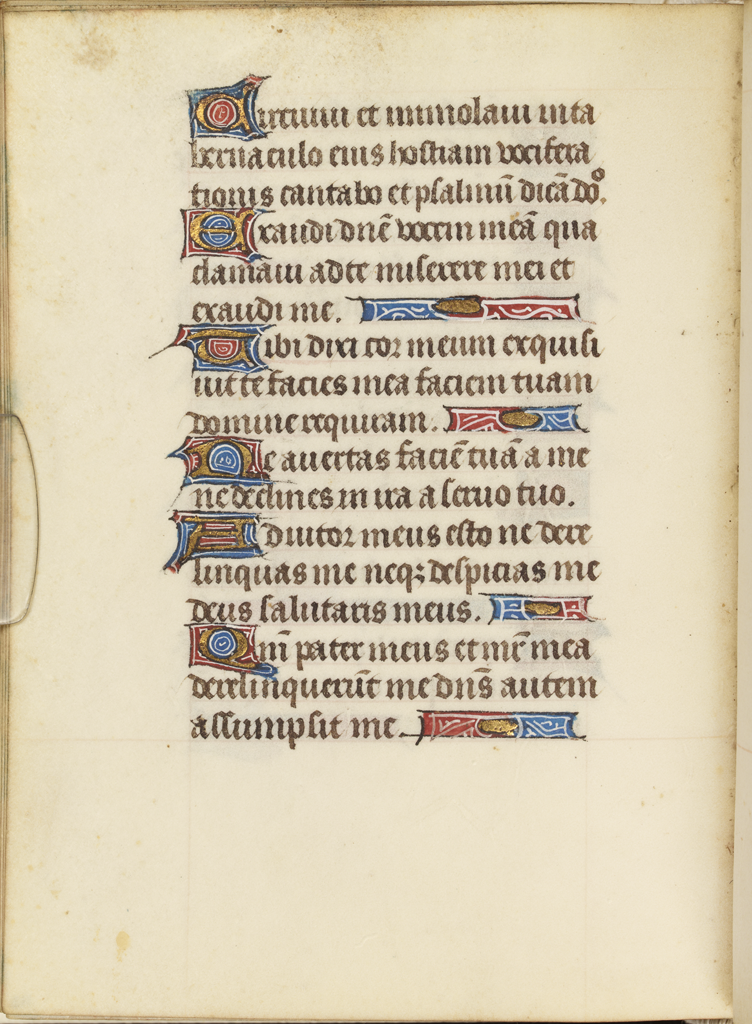 Circuiui et immolaui in ta
bernaculo eius hostiam vocifera
tionis cantabo et psalmū dicā dō.
Exaudi dnē vocem meā qua
clamaui ad te miserere mei et
exaudi me.
Tibi dixi cor meum exquisi
uit te facies mea faciem tuam
domine requiram.
Ne auertas faciē tuā a me
ne declines in ira a seruo tuo.
Adiutor meus esto ne dere
linquas me neqꝫ despicias me
deus salutaris meus.
Qm̄ pater meus et mr̄ mea
derelinquerūt me dn̄s autem
assumpsit me.